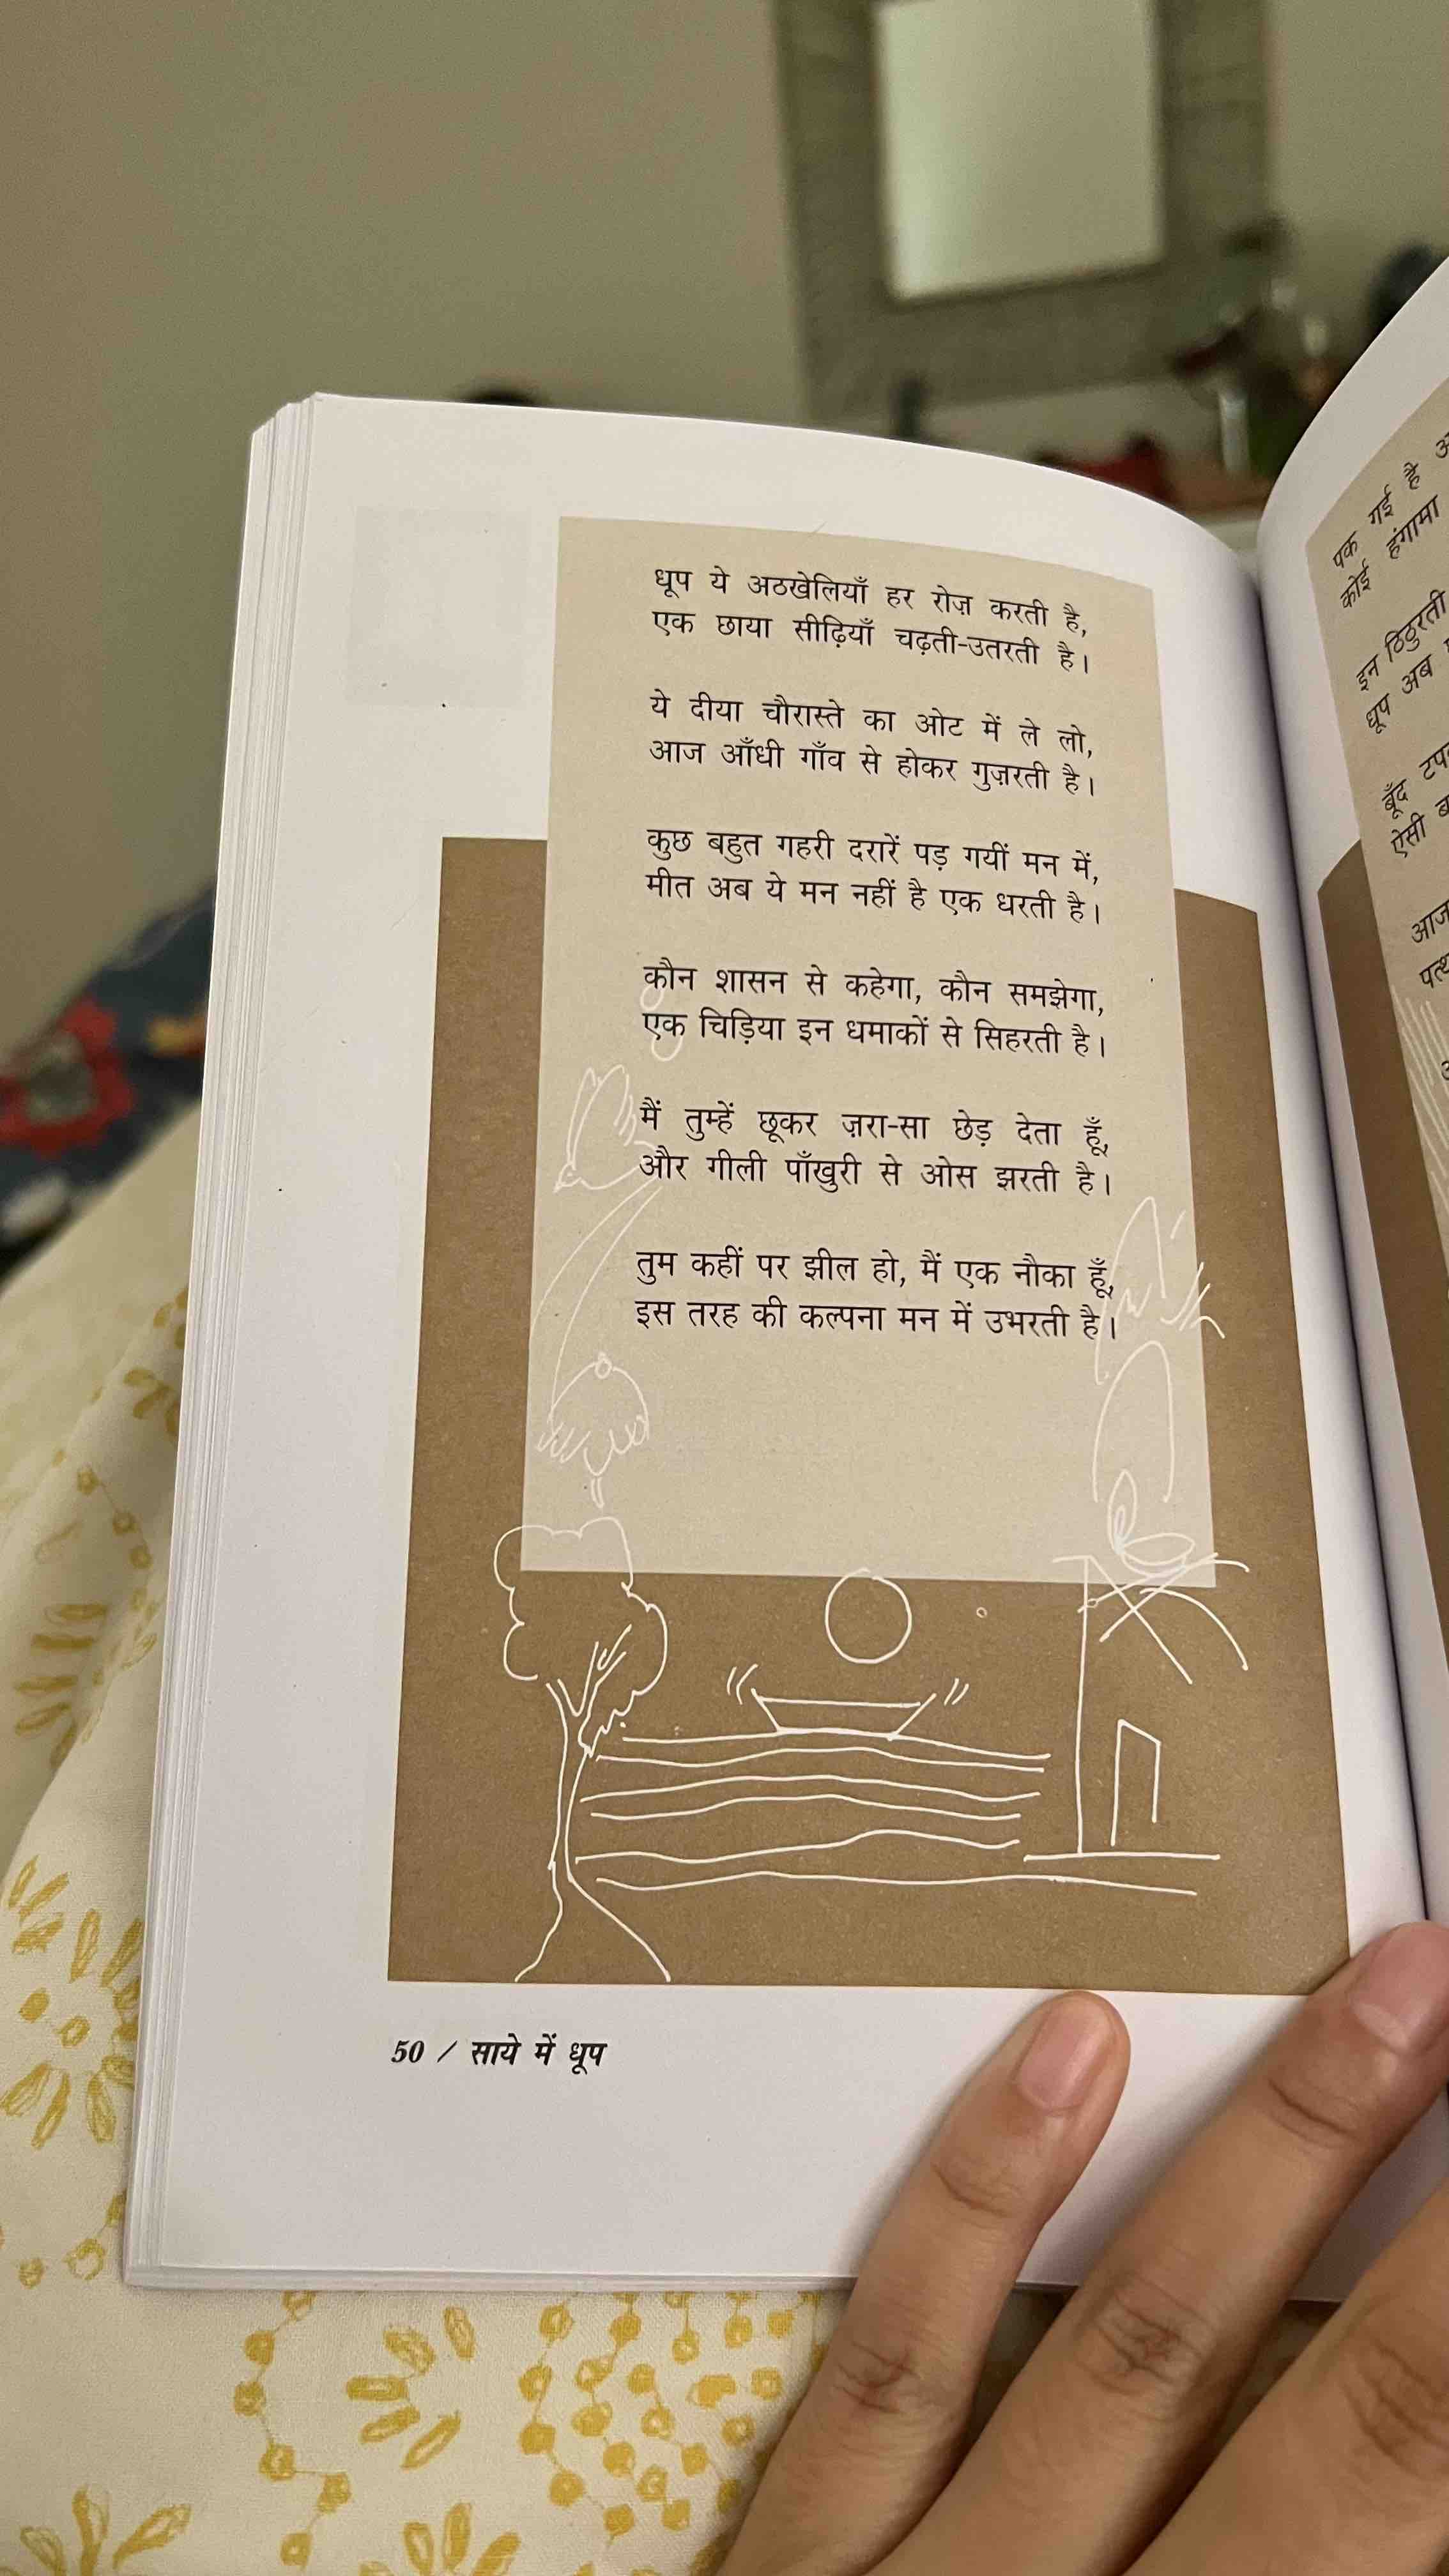 धूप ये अठखेलियाँ हर रोज़ करती है,
एक छाया सीढ़ियाँ चढ़ती-उतरती है।
ये दीया चौरास्ते का ओट में ले लो,
आज आँधी गाँव से होकर गुज़रती है।
कुछ बहुत गहरी दरारें पड़ गयीं मन में,
मीत अब ये मन नहीं है एक धरती है।
कौन शासन से कहेगा, कौन समझेगा,
एक चिड़िया इन धमाकों से सिहरती है।
मैं तुम्हें छूकर ज़रा-सा छेड़ देता हूँ,
और गीली पाँखुरी से ओस झरती है।
तुम कहीं पर झील हो, मैं एक नौका हूँ,
इस तरह की कल्पना मन में उभरती है।
50 / साये में धूप
पक गई है
कोई हंगामा
इन ठिठुरती
धूप अब
बूँद
ऐसी